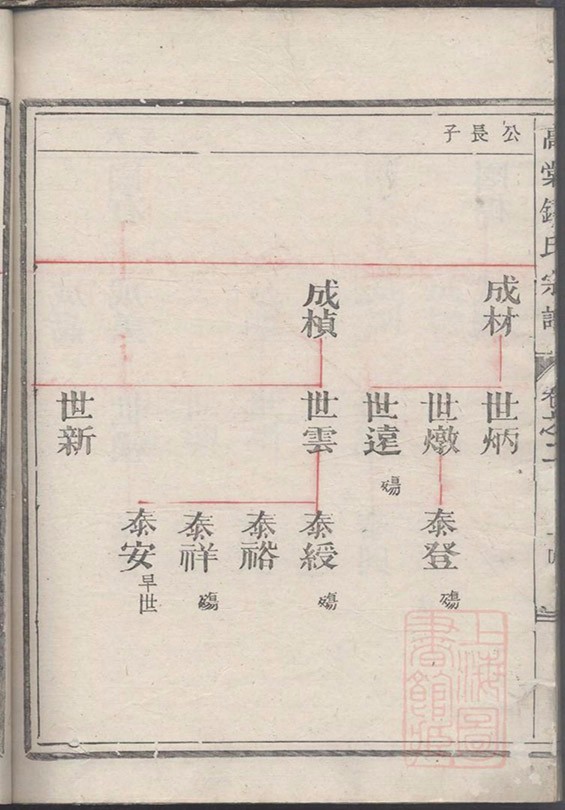 公長子
成材
成楨
世炳
世燉
世遠
殤
世雲
世新
泰登
殤
泰綬
殤
泰裕
泰祥
殤
泰安
早世
氏宗譜
卷之二
上海圖
書館藏